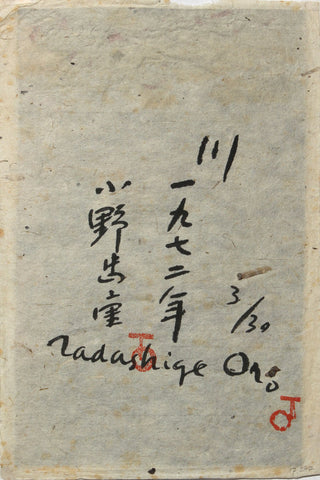 川
一九七二年
小野忠重
3/30
Tadashige Ono